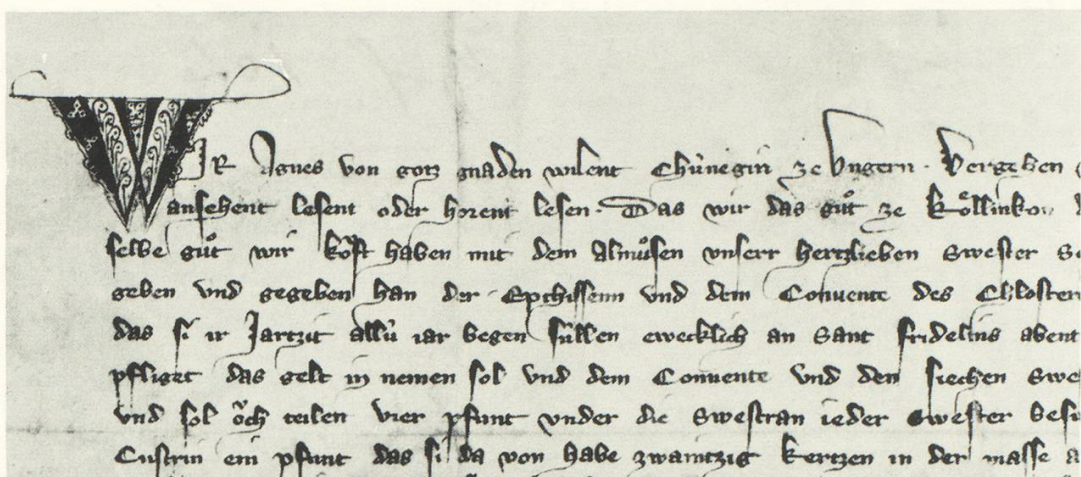 WIR Agnes von gotz gnaden wilent Chu̍negin ze Vngern · Vergehen
ansehent lesent oder horent lesen · Das wir das guͦt ze Koͤllinkon
selbe guͦt wir koͮft haben mit dem almuͦsen vnserr hertzlieben Swester
geben vnd gegeben han der Eptissenn vnd dem Conuente des Chloster
das si ir Jartzit allu̍ iar began su̍llen eweklich an Sant fridelins abent
pfliget das gelt in nemen sol vnd dem Conuente vnd den siechen Swe
vnd sol oͮch teilen vier pfunt vnder die Swestran ieder Swester besu
Custrin ein pfunt das si da von habe zwaintzig kertzen in der masse a